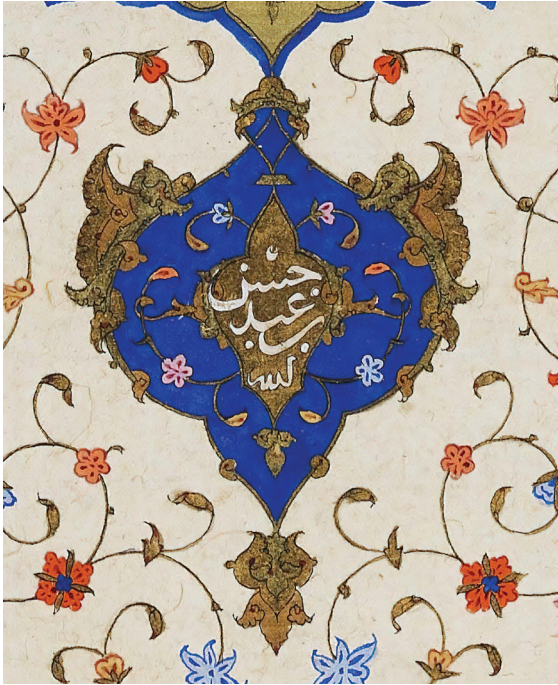 حسن
بن عبد
الله